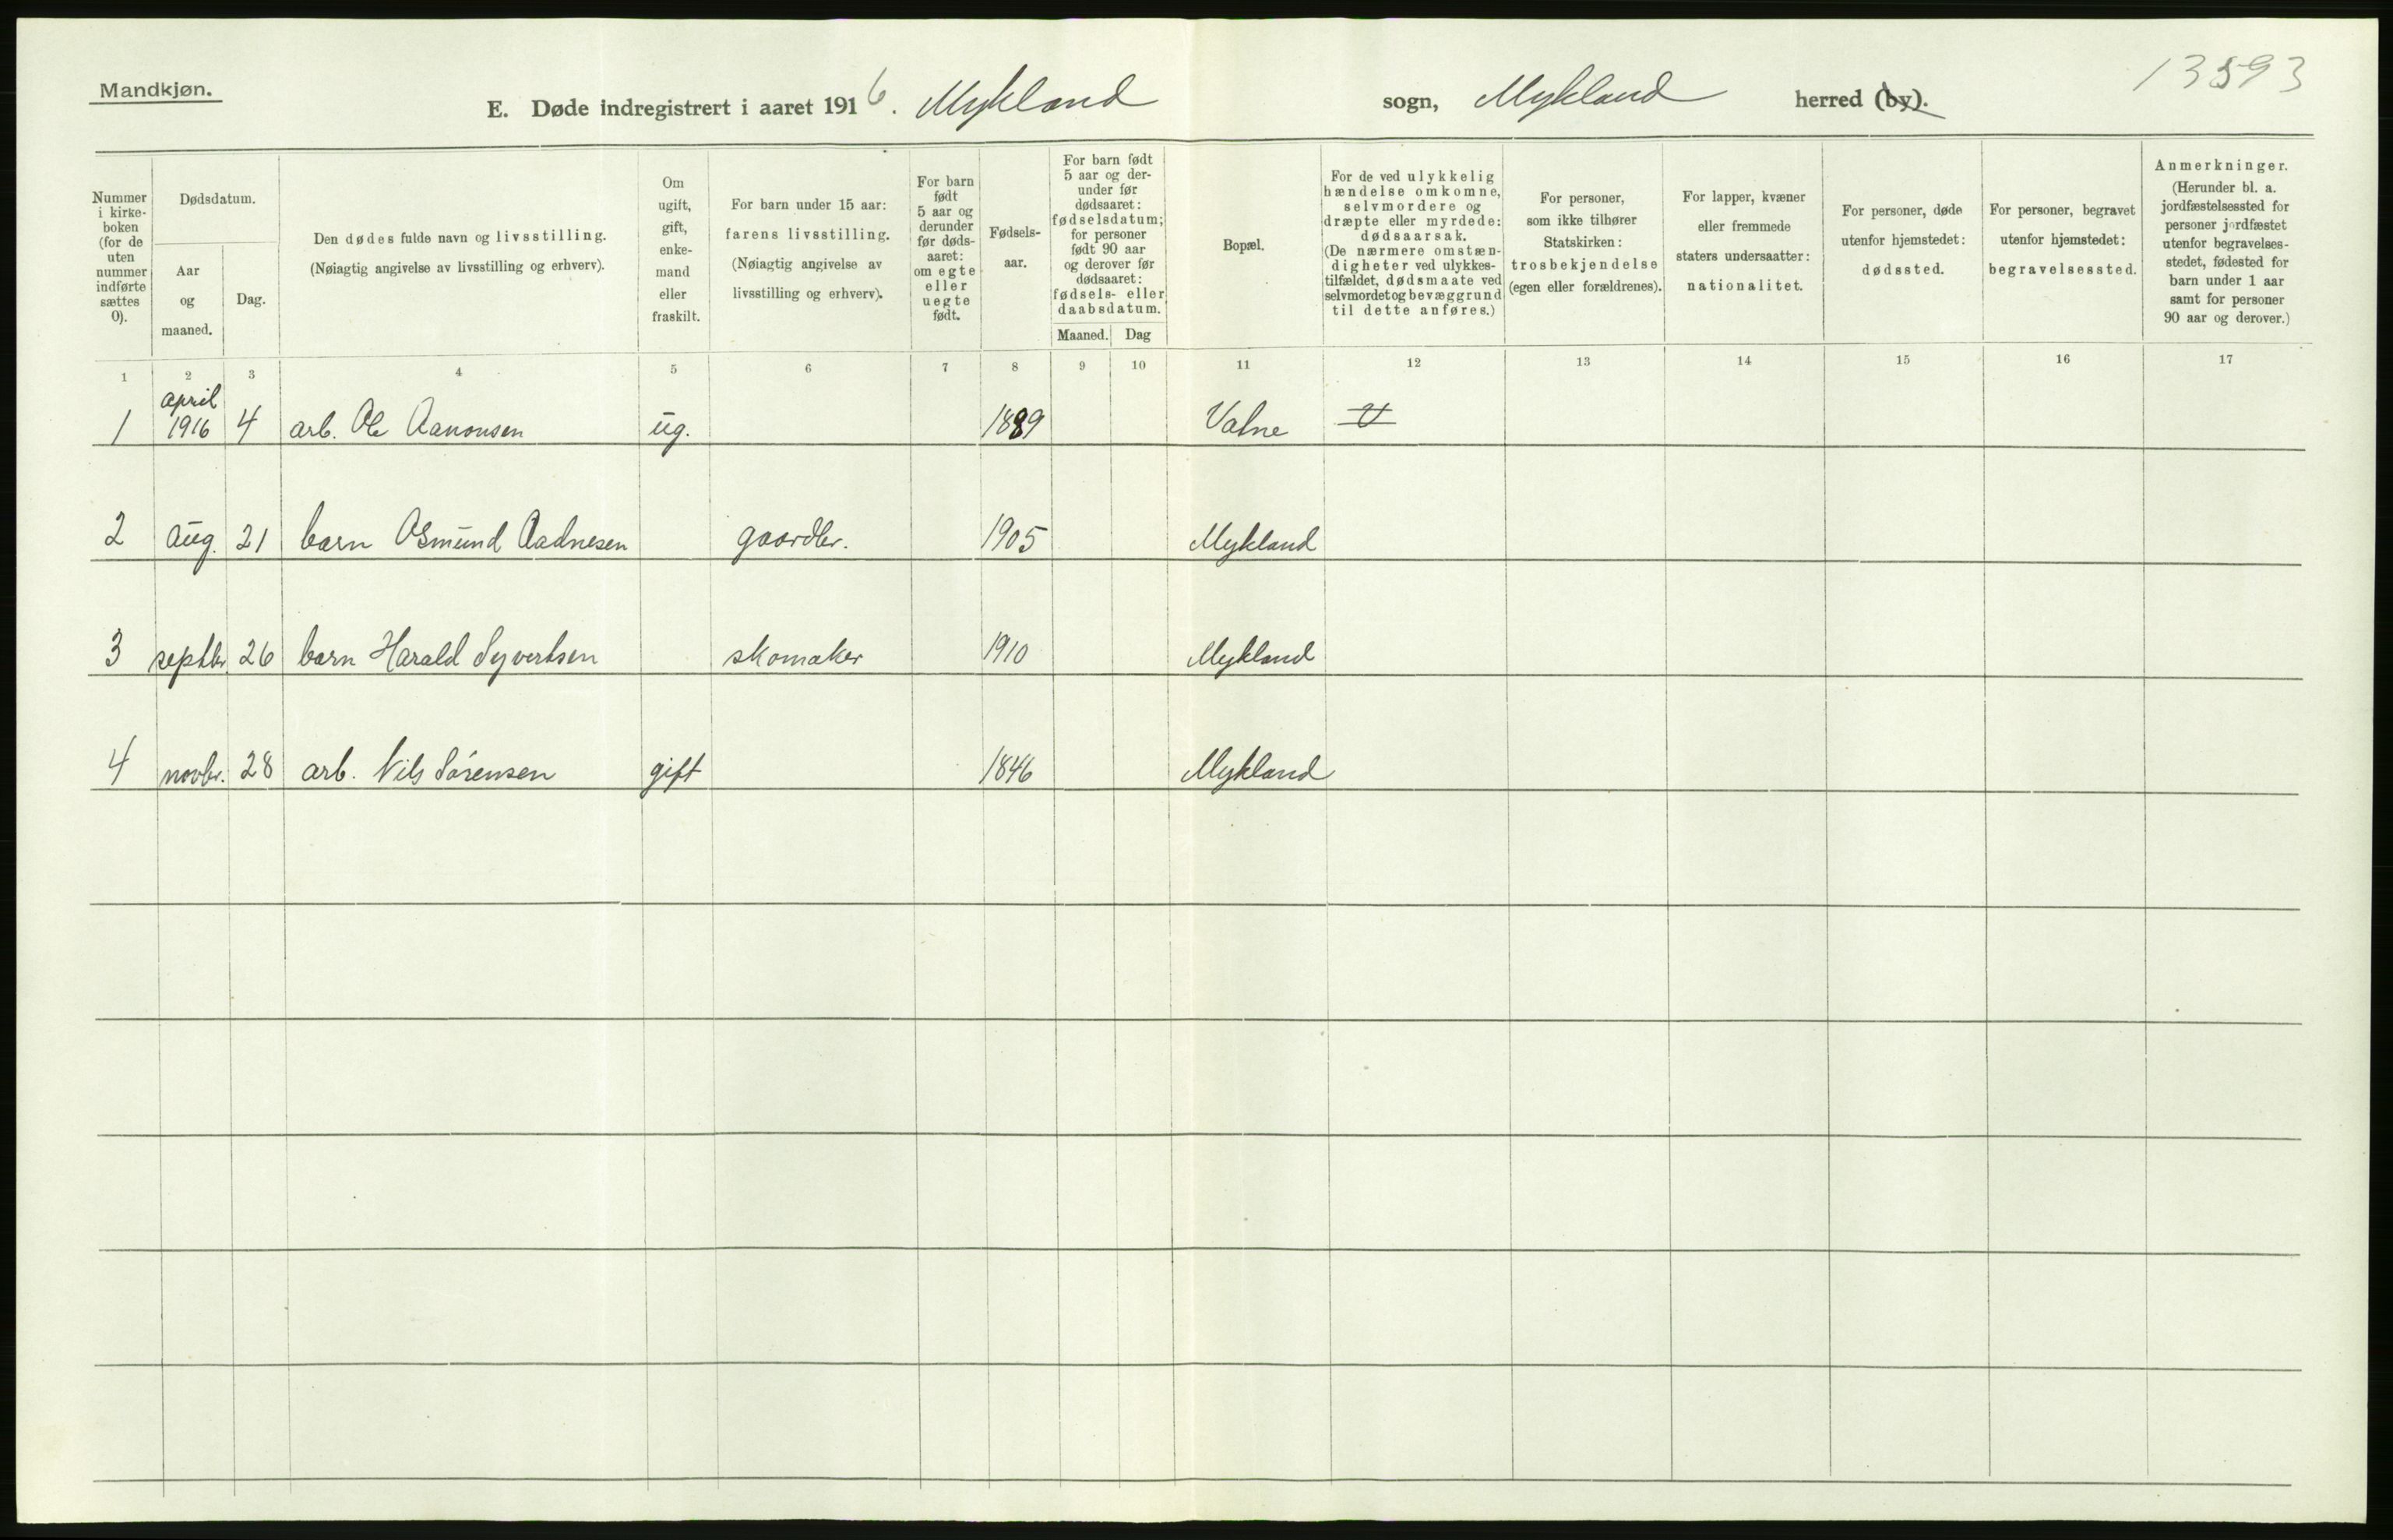 Mandkjøn.
13593
E. Døde indregistrert i aaret 1916. Mykland sogn, Mykland herred (by).
Nummer i kirke-boken (for de uten nummer indførte sættes 0).
Dødsdatum.
Aar og maaned.
Dag.
Den dødes fulde navn og livsstilling.
(Nøiagtig angivelse av livsstilling og erhverv).
Om ugift, gift, enke-mand eller fraskilt.
For barn under 15 aar: farens livsstilling.
(Nøiagtig angivelse av livsstilling og erhverv).
For barn født 5 aar og derunder før døds-aaret: om egte eller uegte født.
Fødsels-aar.
For barn født 5 aar og der-under før dødsaaret: fødselsdatum; for personer født 90 aar og derover før dødsaaret: fødsels- eller daabsdatum.
Maaned. Dag
Bopæl.
For de ved ulykkelig hændelse omkomne, selvmordere og dræpte eller myrdede: dødsaarsak.
(De nærmere omstæn-digheter ved ulykkes-tilfældet, dødsmaate ved selvmordet og bevæggrund til dette anføres.)
For personer, som ikke tilhører Statskirken: trosbekjendelse (egen eller forældrenes).
For lapper, kvæner eller fremmede staters undersaatter: nationalitet.
For personer, døde utenfor hjemstedet: dødssted.
For personer, begravet utenfor hjemstedet: begravelsessted.
Anmerkninger.
(Herunder bl. a. jordfæstelsessted for personer jordfæstet utenfor begravelses-stedet, fødested for barn under 1 aar samt for personer 90 aar og derover.)
1 2 3 4 5 6 7 8 9 10 11 12 13 14 15 16 17
april
1 1916 4 arb. Ole Aanonsen ug. 1889 Valne
2 aug. 21 barn Osmund Aadnesen gaardbr. 1905 Mykland
3 septbr. 26 barn Harald Syvertsen skomaker 1910 Mykland
4 novbr. 28 arb. Nils Sørensen gift 1846 Mykland